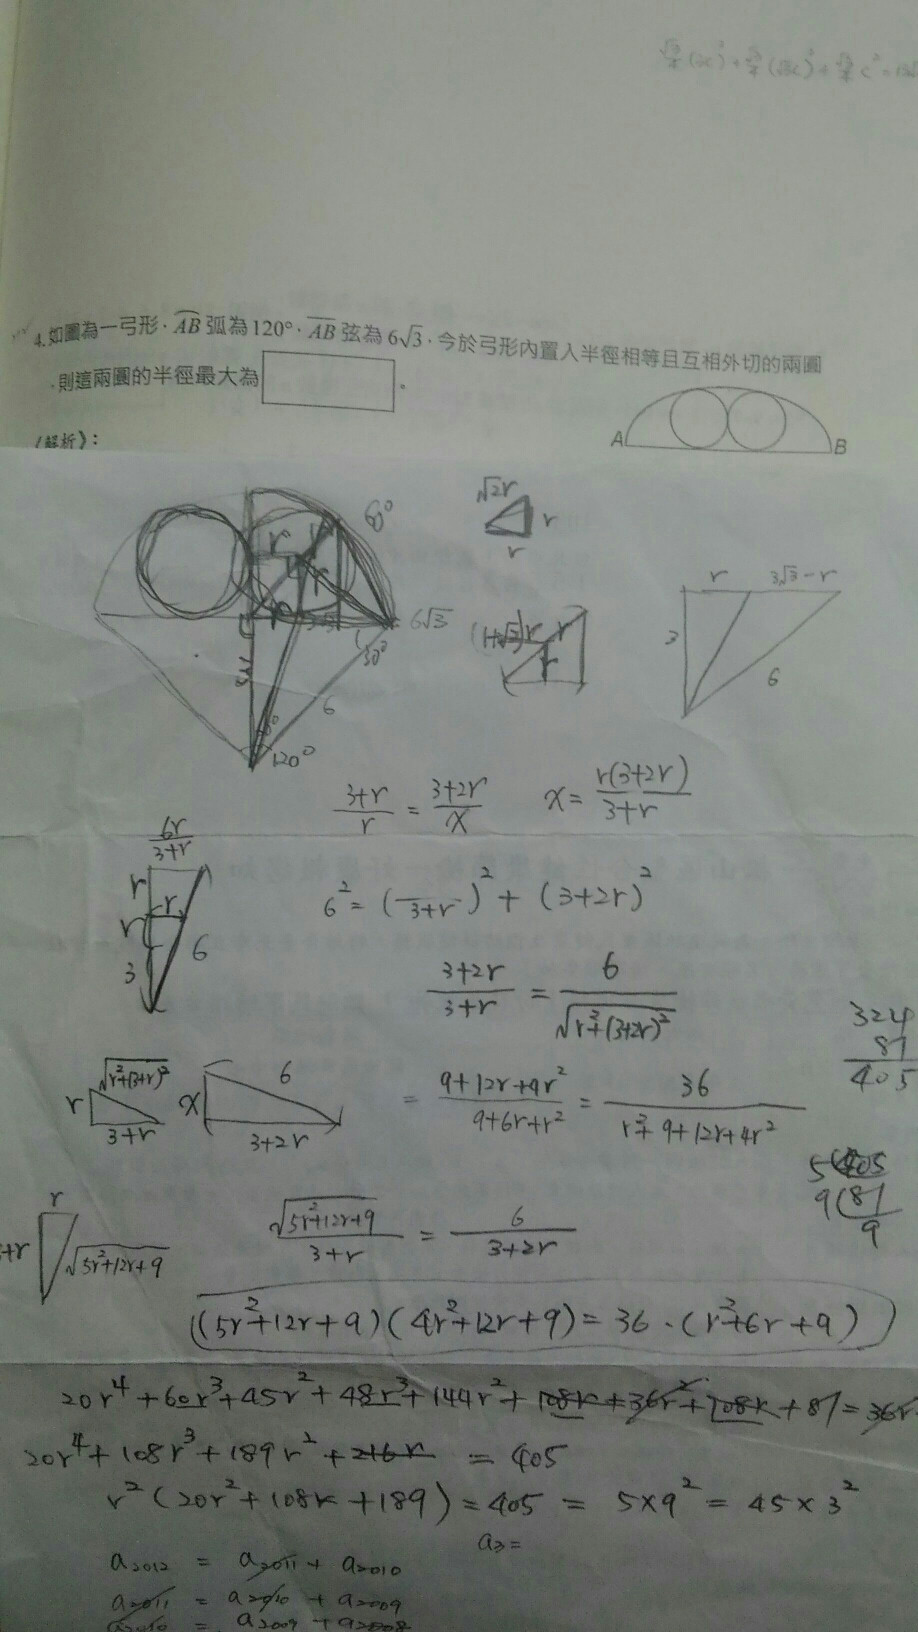 4.如圖為一弓形，AB 弧為120°，AB 弦為 6√3，今於弓形內置入半徑相等且互相外切的兩圓
，則這兩圓的半徑最大為 。
A B
《解析》：
√2r
r
r
60°
r
r
r
6√3
30°
6
120°
(1+√2)r r
r
r 3√3-r
3
6
(3+r)/r = (3+2r)/x x = r(3+2r)/(3+r)
6r/(3+r)
r
r r
3 6
6² = ( /3+r )² + (3+2r)²
(3+2r)/(3+r) = 6/√(r²+(3+2r)²)
324
81
405
√(r²+(3+r)²)
r
3+r
x 6
3+2r
= (9+12r+4r²)/(9+6r+r²) = 36/(r²+9+12r+4r²)
9 81
9
r
+r √(5r²+12r+9)
√(5r²+12r+9)/(3+r) = 6/(3+2r)
(5r²+12r+9)(4r²+12r+9)=36·(r²+6r+9)
20r⁴+60r³+45r²+48r³+144r²+108r+36r²+108r+81=36r
20r⁴+108r³+189r²+216r =405
r²(20r²+108r+189)=405 = 5×9² = 45×3²
a₂=
a2012 = a2011 + a2010
a2011 = a2010 + a2009
a2010 = a2009 + a2008